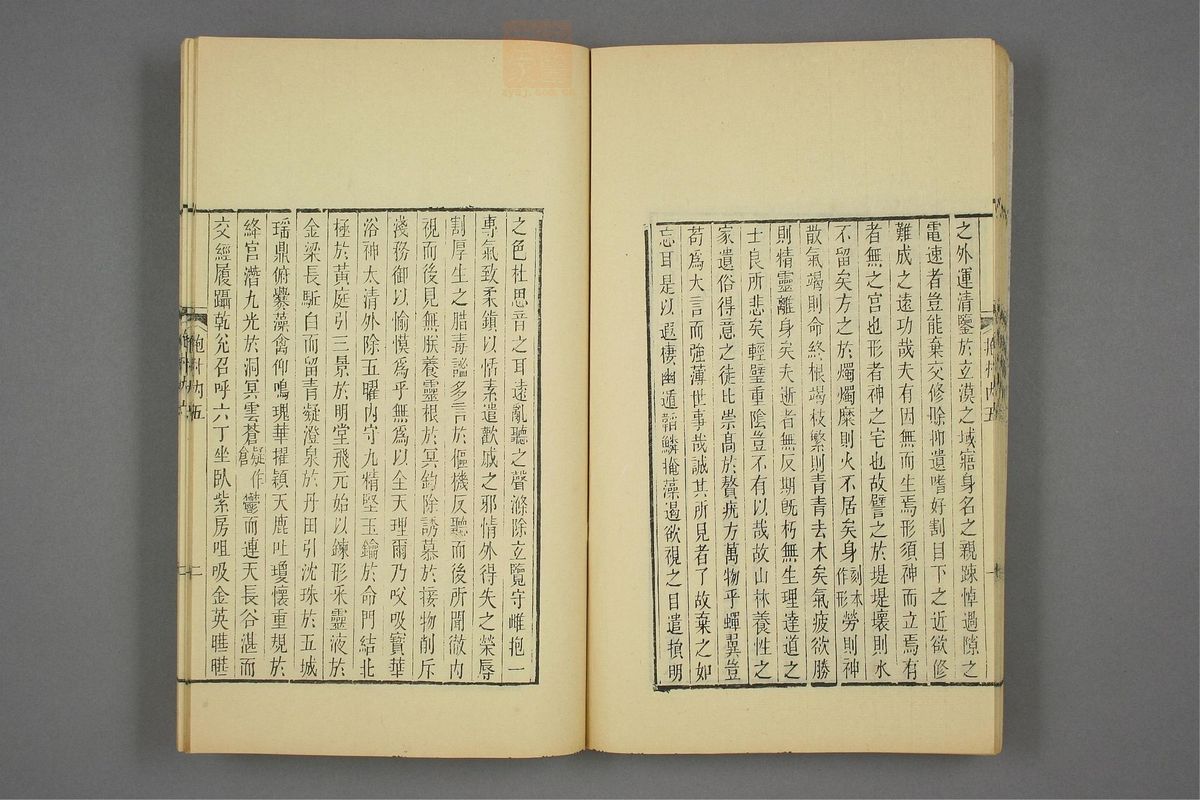 之外運清鑒於立漠之域寤身名之親疎悼過隙之
電速者豈能棄交修賒抑遺嗜好割目下之近欲修
難成之遠功哉夫有因無而生焉形須神而立焉有
者無之宫也形者神之宅也故譬之於堤堤壞則水
不留矣方之於燭燭糜則火不居矣身刻本作形勞則神
散氣竭則命終根竭枝繁則青青去木矣氣疲欲勝
則精靈離身矣夫逝者無反期旣朽無生理達道之
士良所悲矣輕璧重陰豈不有以哉故山林養性之
家遺俗得意之徒比崇高於贅疣方萬物乎蟬翼豈
苟爲大言而強薄世事哉誠其所見者了故棄之如
忘耳是以遐棲幽遁韜鱗掩藻遏欲視之目遣損明
之色杜思音之耳遠亂聽之聲滌除立覽守雌抱一
專氣致柔鎭以恬素遣歡戚之邪情外得失之榮辱
割厚生之腊毒謐多言於樞機反聽而後所聞徹内
視而後見無朕養靈根於冥鈞除誘慕於接物削斥
淺務御以愉慔爲乎無爲以全天理爾乃㕮吸寳華
浴神太清外除五曜内守九精堅玉鑰於命門結北
極於黃庭引三景於明堂飛元始以鍊形采靈液於
金梁長駈白而留青凝澄泉於丹田引沈珠於五城
瑶鼎俯爨藻禽仰鳴瑰華擢穎天鹿吐瓊懷重規於
絳宫潛九光於洞冥雲蒼疑作倉鬱而連天長谷湛而
交經履躡乾兊召呼六丁坐臥紫房咀吸金英曄曄
抱朴内五
二